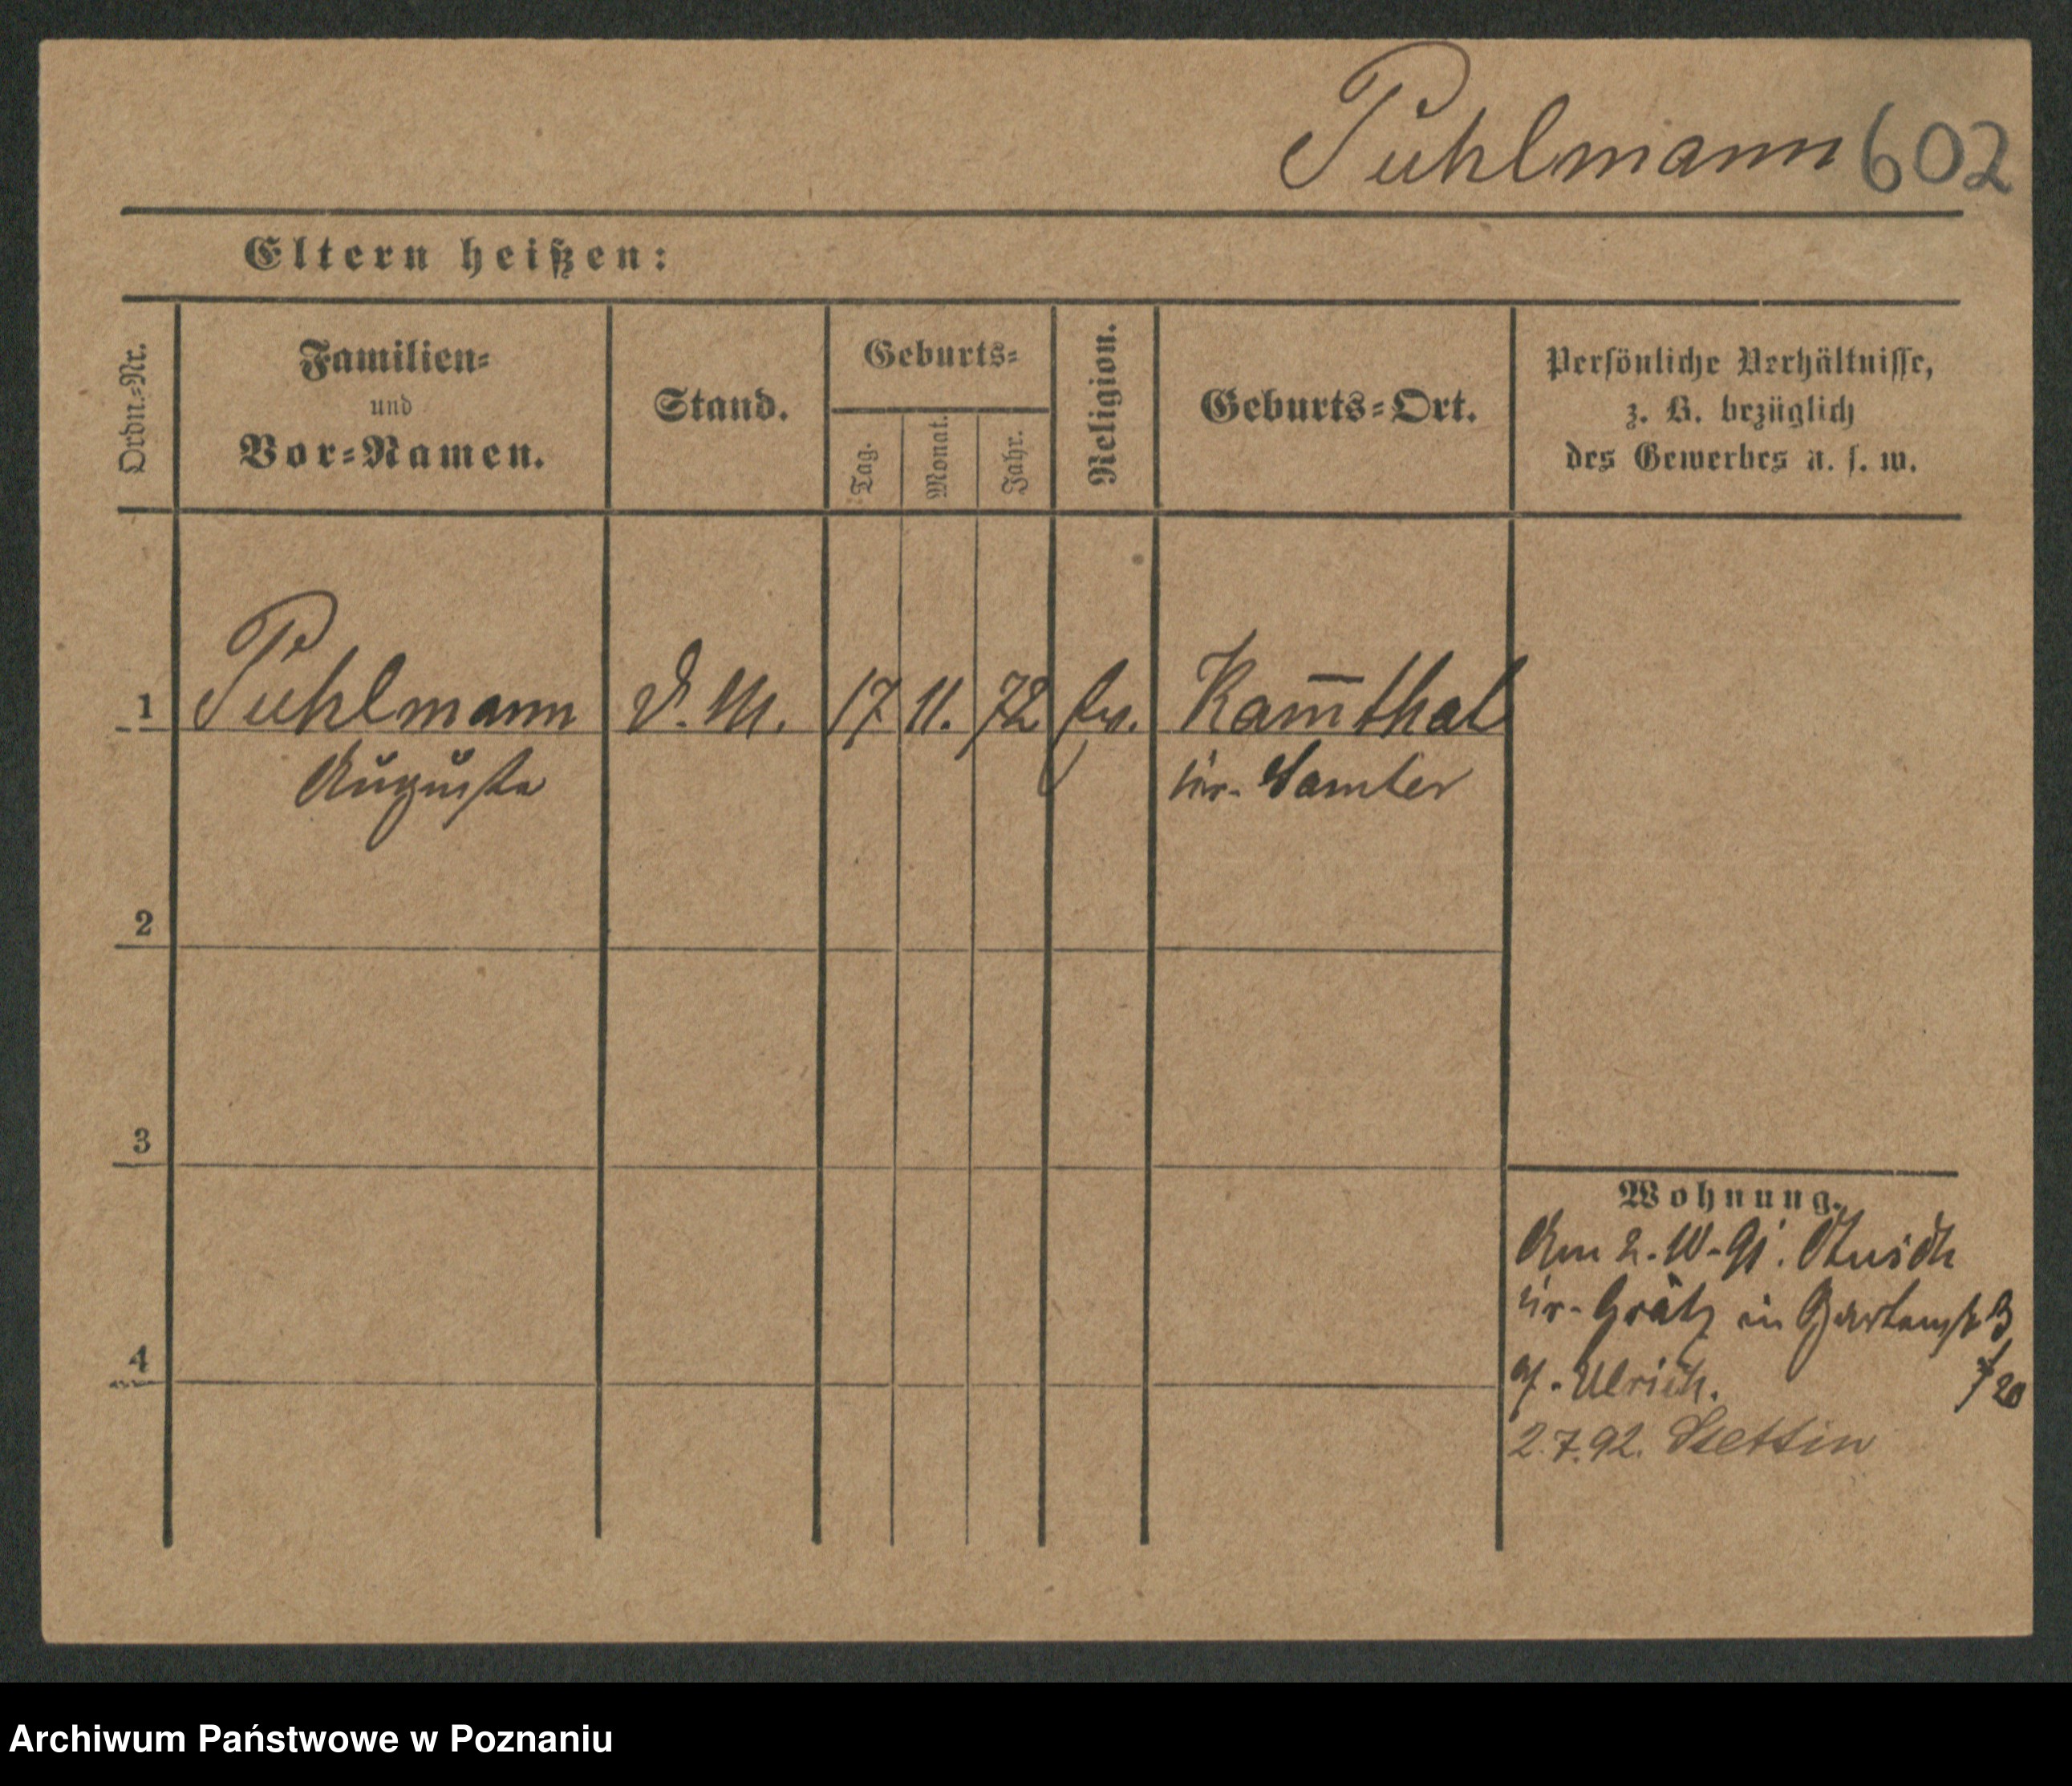 Puhlmann 602
Eltern heißen:
Ordn.-Nr.
Familien-
und
Vor-Namen.
Stand.
Geburts-
Tag.
Monat.
Jahr.
Religion.
Geburts-Ort.
Persönliche Verhältnisse,
z. B. bezüglich
des Gewerbes u. s. w.
1 Puhlmann D. M. 17 11. 72 ev. Kam̅thal
Auguste Kr. Samter
2
3
4
Wohnung.
Am 2. 10. 91.
Kr. Grätz in Gartenstr 3
Ulrich. 20
2.7.92. Stettin
Archiwum Państwowe w Poznaniu